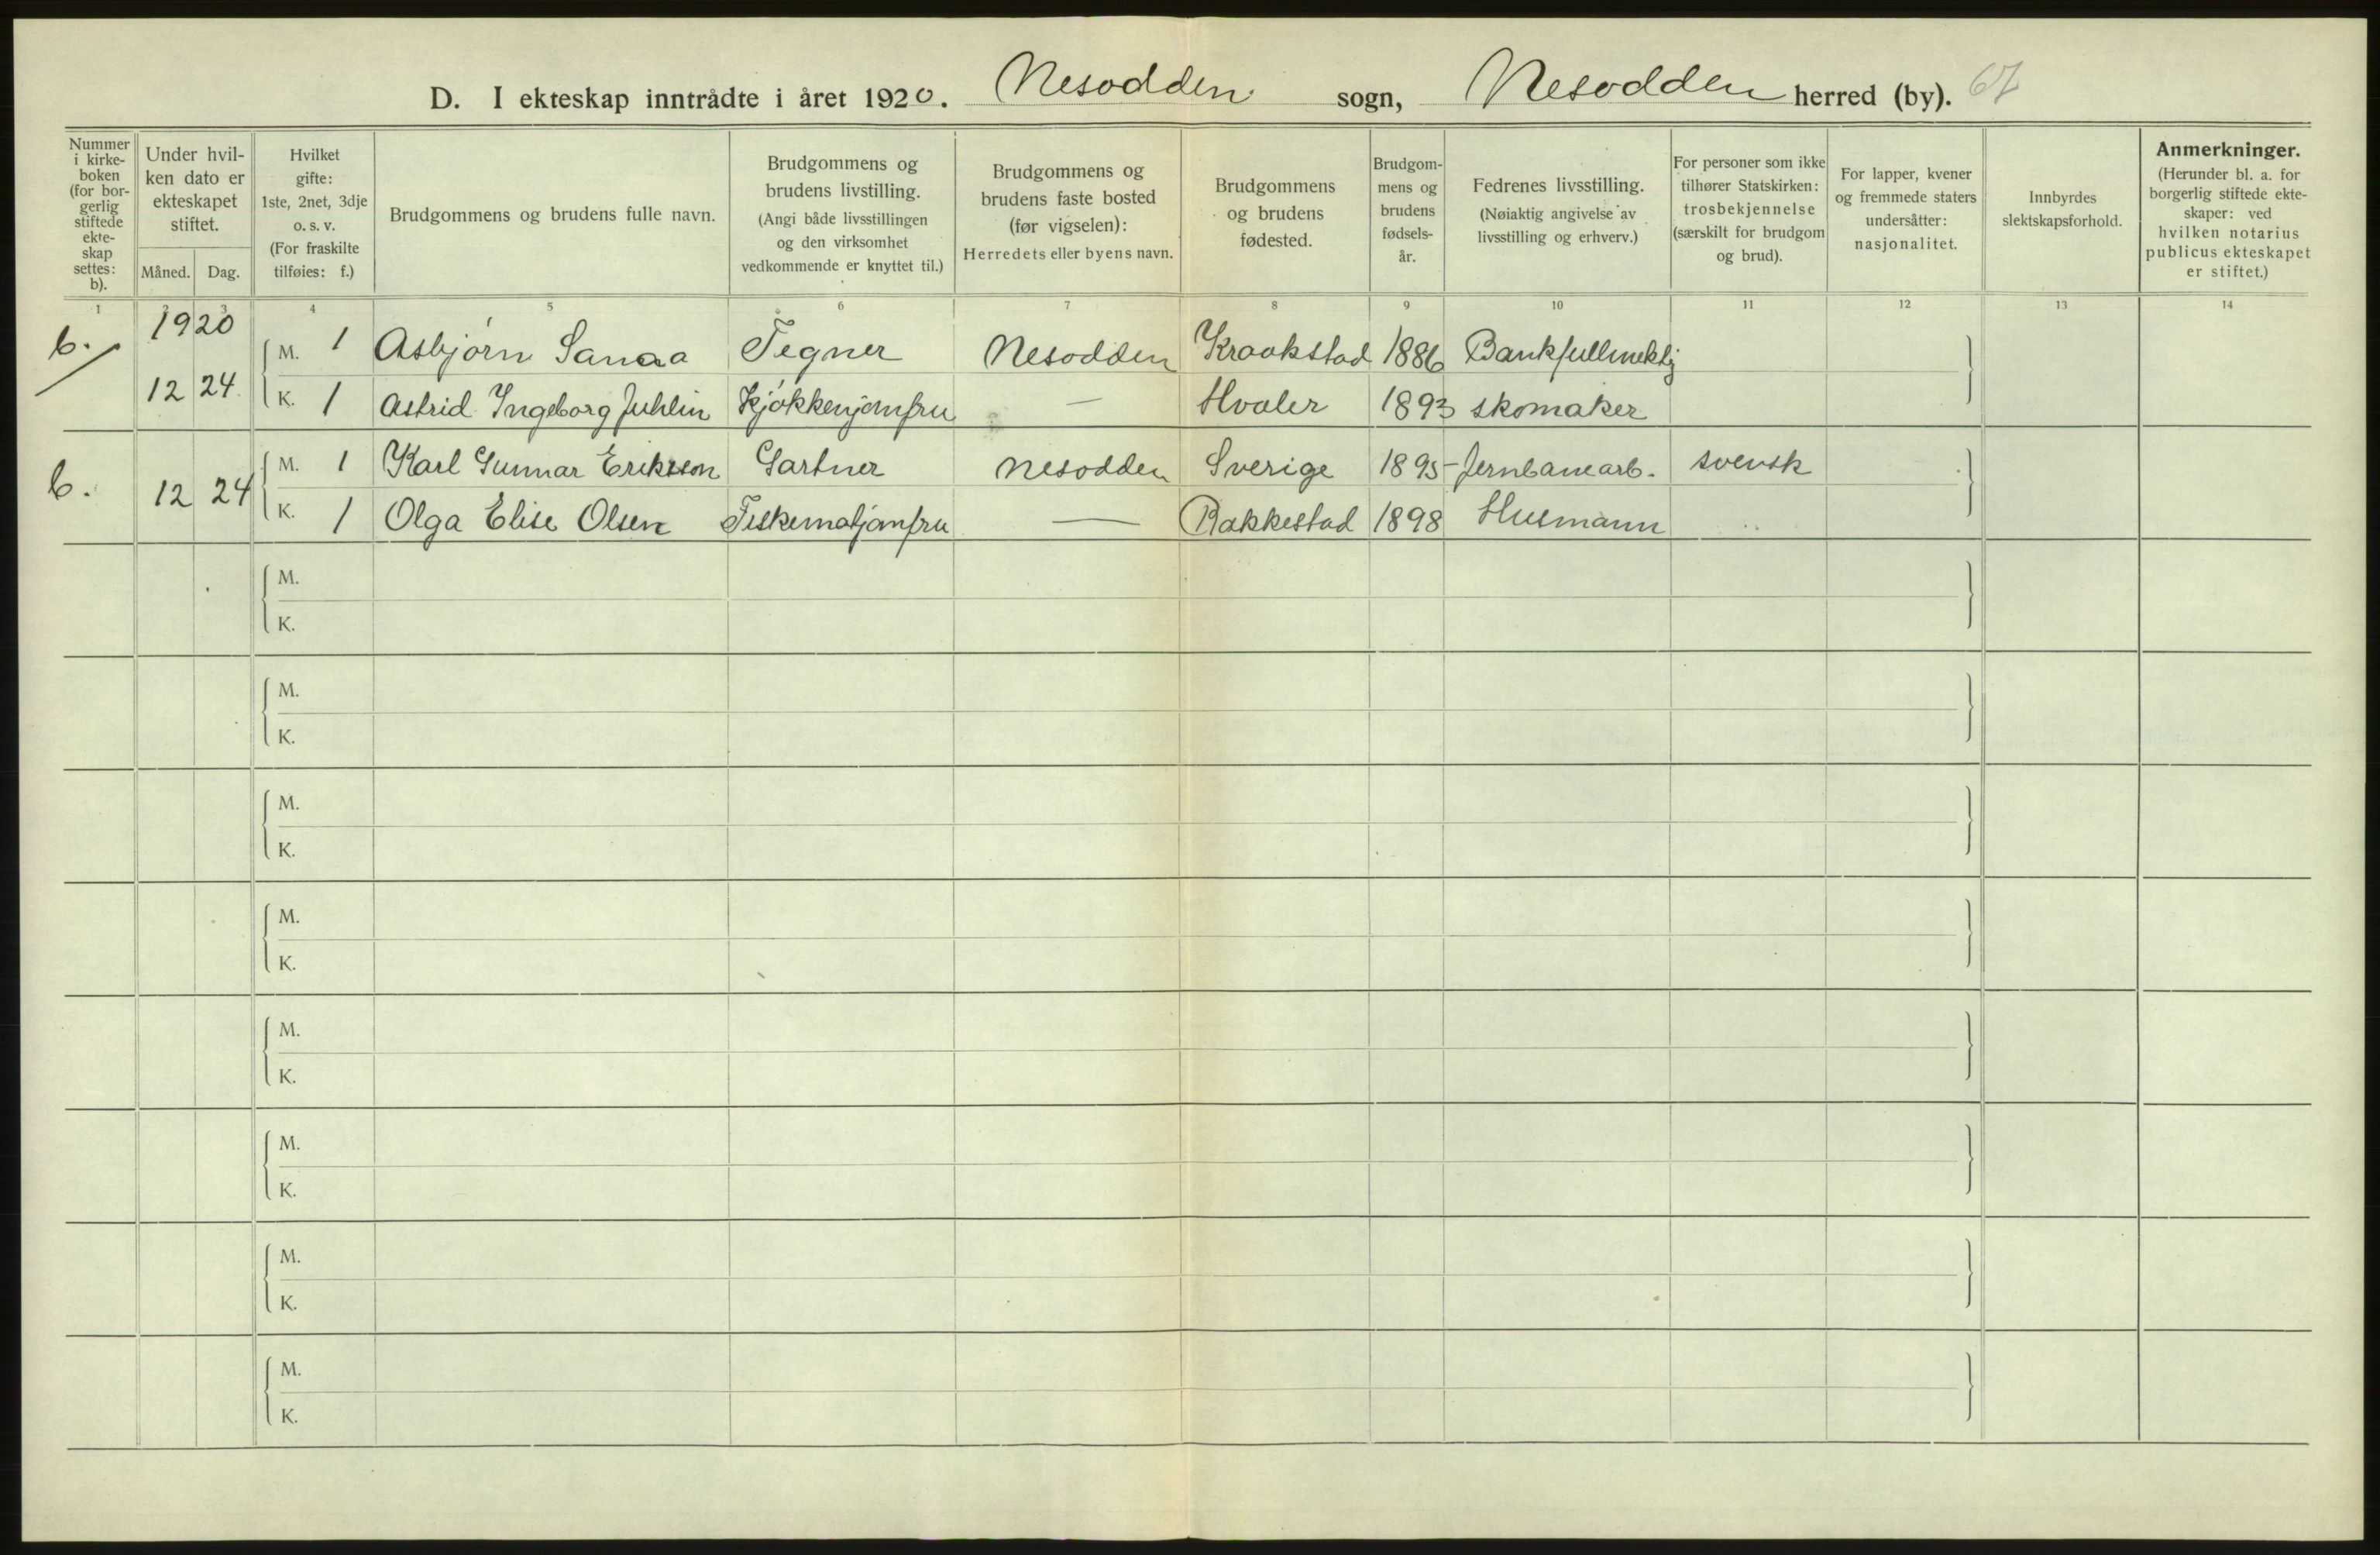 D. I ekteskap inntrådte i året 1920. Nesodden sogn, Nesodden herred (by). 67
Nummer i kirke-boken (for bor-gerlig stiftede ekte-skap settes: b).
Under hvil-ken dato er ekteskapet stiftet.
Måned. Dag.
Hvilket gifte: 1ste, 2net, 3dje o. s. v. (For fraskilte tilføies: f.)
Brudgommens og brudens fulle navn.
Brudgommens og brudens livstilling. (Angi både livsstillingen og den virksomhet vedkommende er knyttet til.)
Brudgommens og brudens faste bosted (før vigselen): Herredets eller byens navn.
Brudgommens og brudens fødested.
Brudgom-mens og brudens fødsels-år.
Fedrenes livsstilling. (Nøiaktig angivelse av livsstilling og erhverv.)
For personer som ikke tilhører Statskirken: trosbekjennelse (særskilt for brudgom og brud).
For lapper, kvener og fremmede staters undersåtter: nasjonalitet.
Innbyrdes slektskapsforhold.
Anmerkninger. (Herunder bl. a. for borgerlig stiftede ekte-skaper: ved hvilken notarius publicus ekteskapet er stiftet.)
1 2 3 4 5 6 7 8 9 10 11 12 13 14
1920
b. M. 1 Asbjørn Sanaa Tegner Nesodden Kraakstad 1886 Bankfullmektig
12 24 K. 1 Astrid Ingeborg Juhlin Kjøkkenjomfru — Hvaler 1893 skomaker
b. 12 24 M. 1 Karl Gunnar Eriksson Gartner Nesodden Sverige 1895 Jernbanearb. svensk
K. 1 Olga Elise Olsen Fiskematjomfru — Rakkestad 1898 Husmann
M.
K.
M.
K.
M.
K.
M.
K.
M.
K.
M.
K.
M.
K.
M.
K.